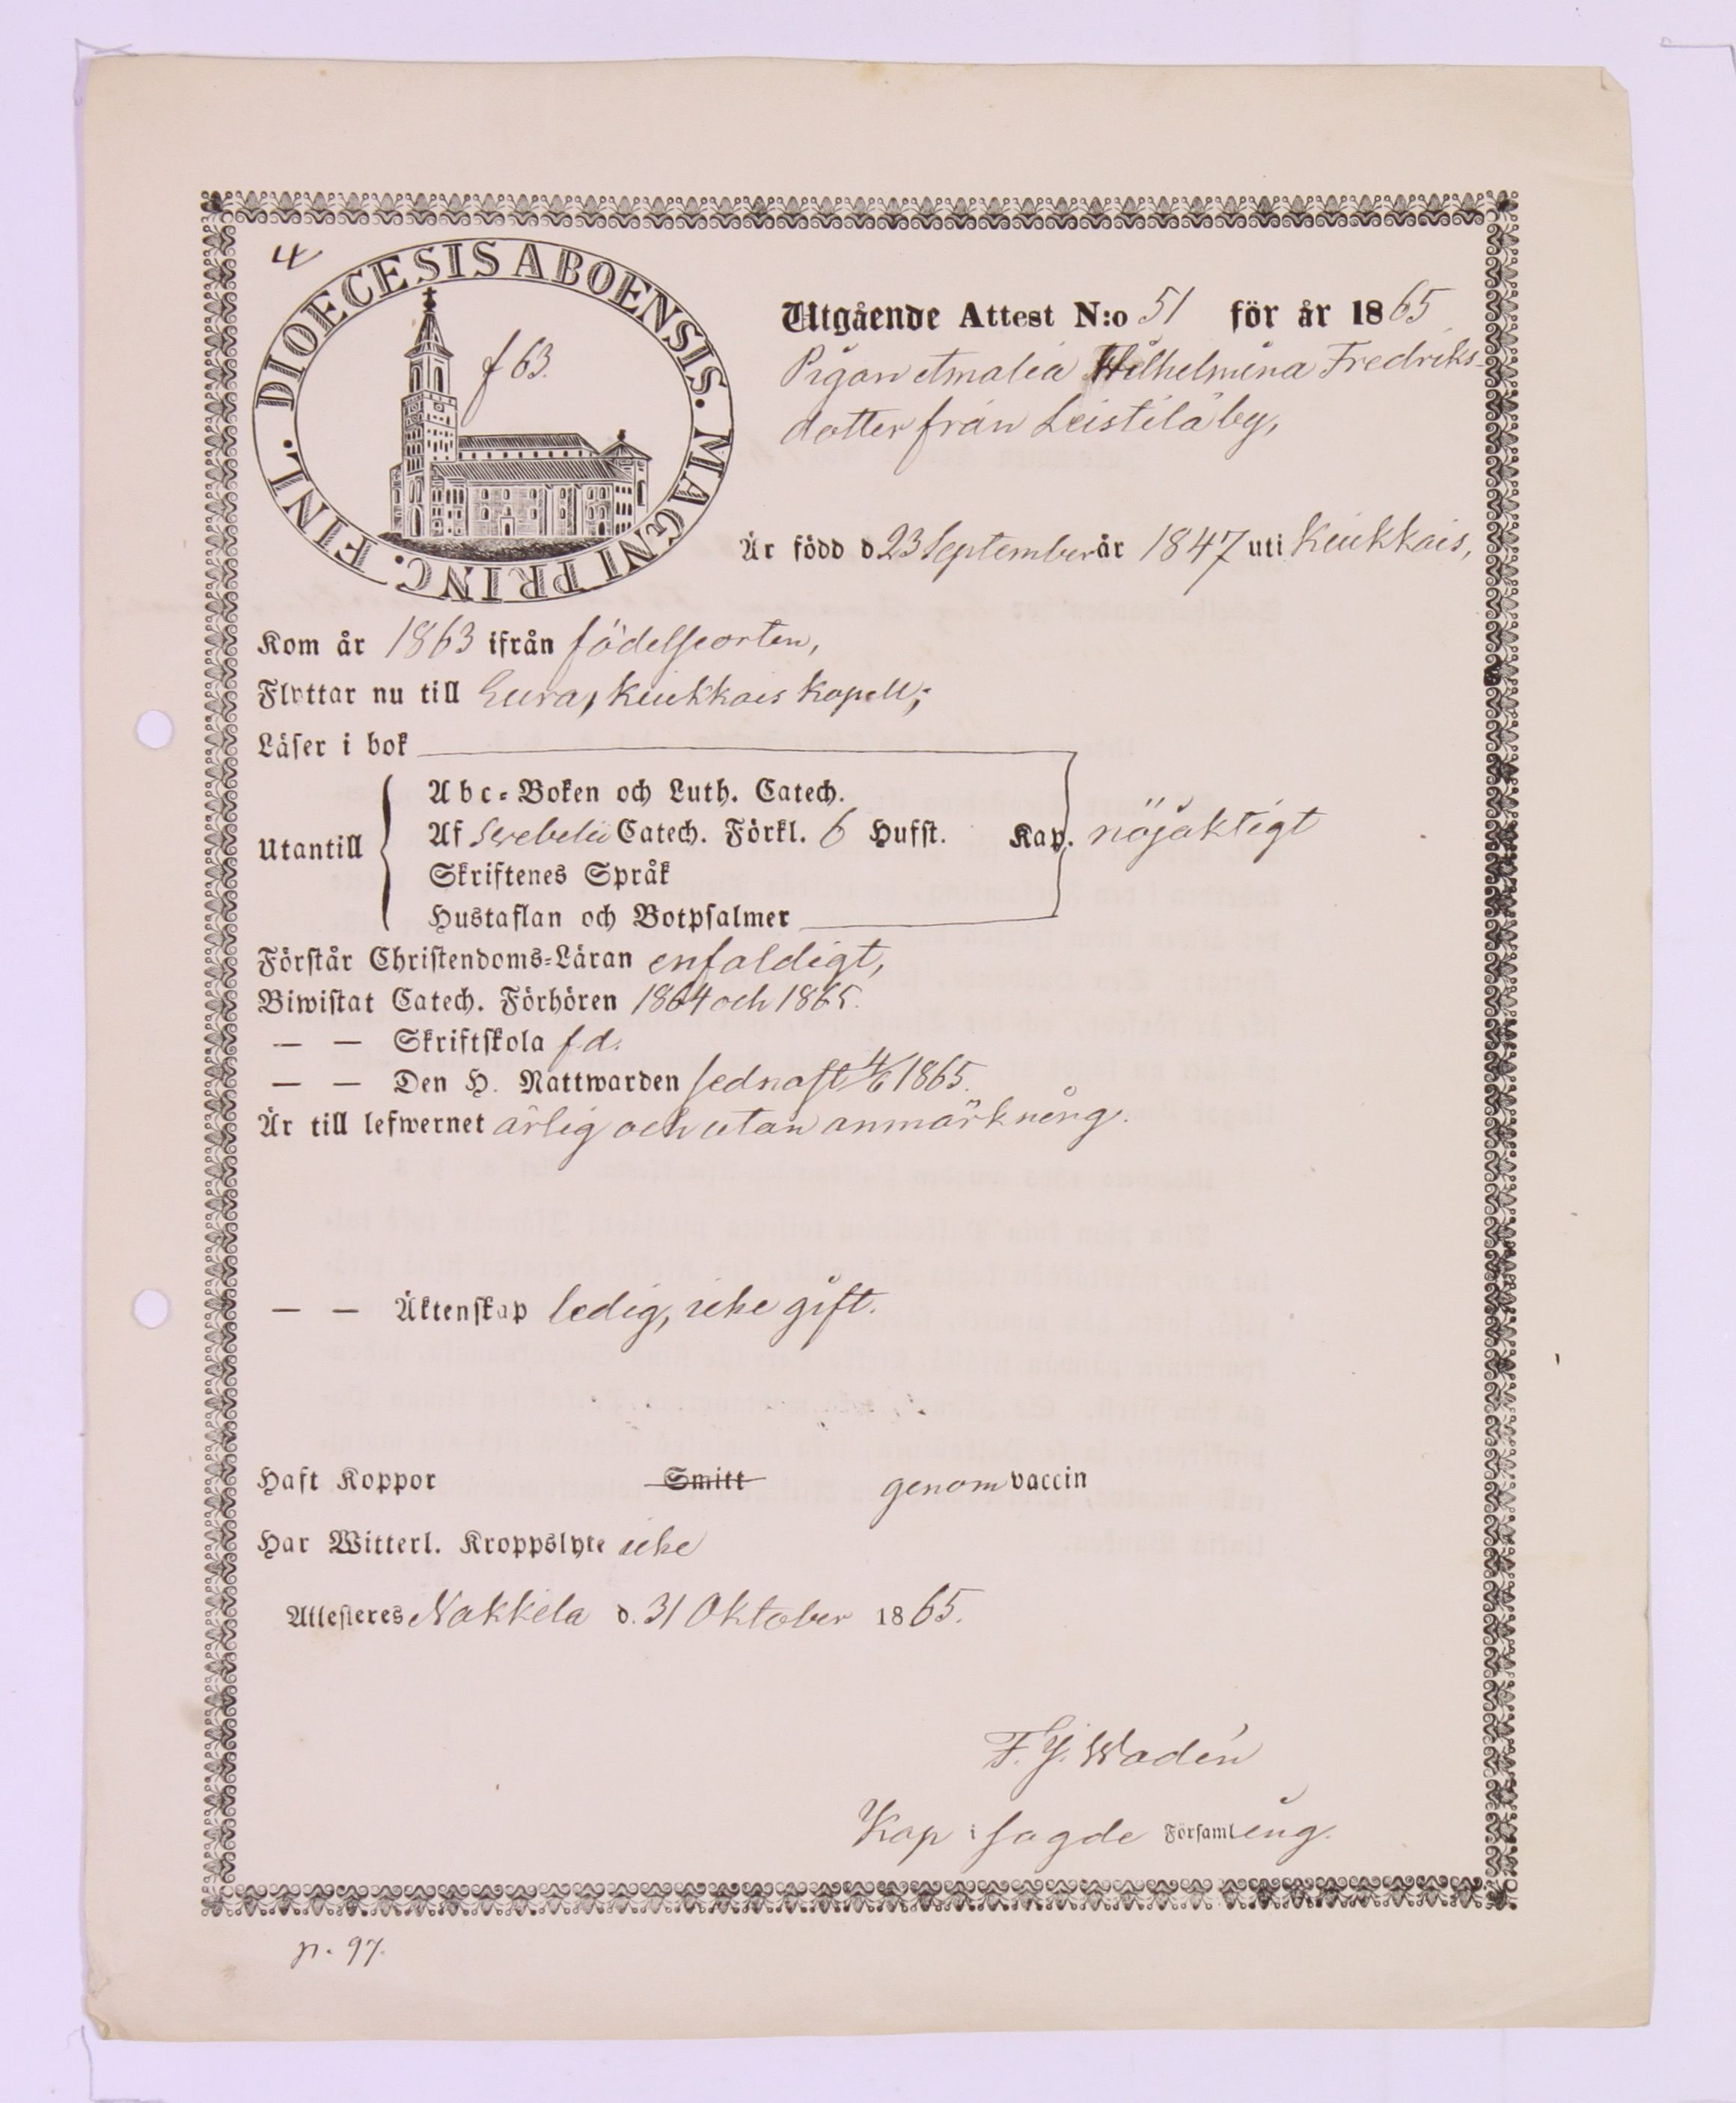 4
DIOECESIS ABOENSIS. MAGNI PRINC. FINL.
f 63.
Utgående Attest N:o 51 för år 1865
Pigan Amalia Wilhelmina Fredriks-
dotter från Leistilä by,
Är född d 23 September år 1847 uti Kiukkais,
Kom år 1863 ifrån födelseorten,
Flyttar nu till Eura, Kiukkais Kapell;
Läser i bok
Abc-Boken och Luth. Catech.
Utantill Af Svebelii Catech. Förkl. 6 Hufst. Kap. nöjaktigt
Skriftenes Språk
Hustaflan och Botpsalmer
Förstår Christendoms-Läran enfaldigt,
Biwistat Catech. Förhören 1864 och 1865.
— — Skriftskola f. d.
— — Den H. Nattwarden sednast 4/6 1865.
Är till lefwernet ärlig och utan anmärkning.
— — Äktenskap ledig, icke gift.
Haft Koppor Smitt genom vaccin
Har Witterl. Kroppslyte icke
Attesteres Nakkila d. 31 Oktober 1865.
F. J. Wadén
Kap i sagde Församling.
p. 97.